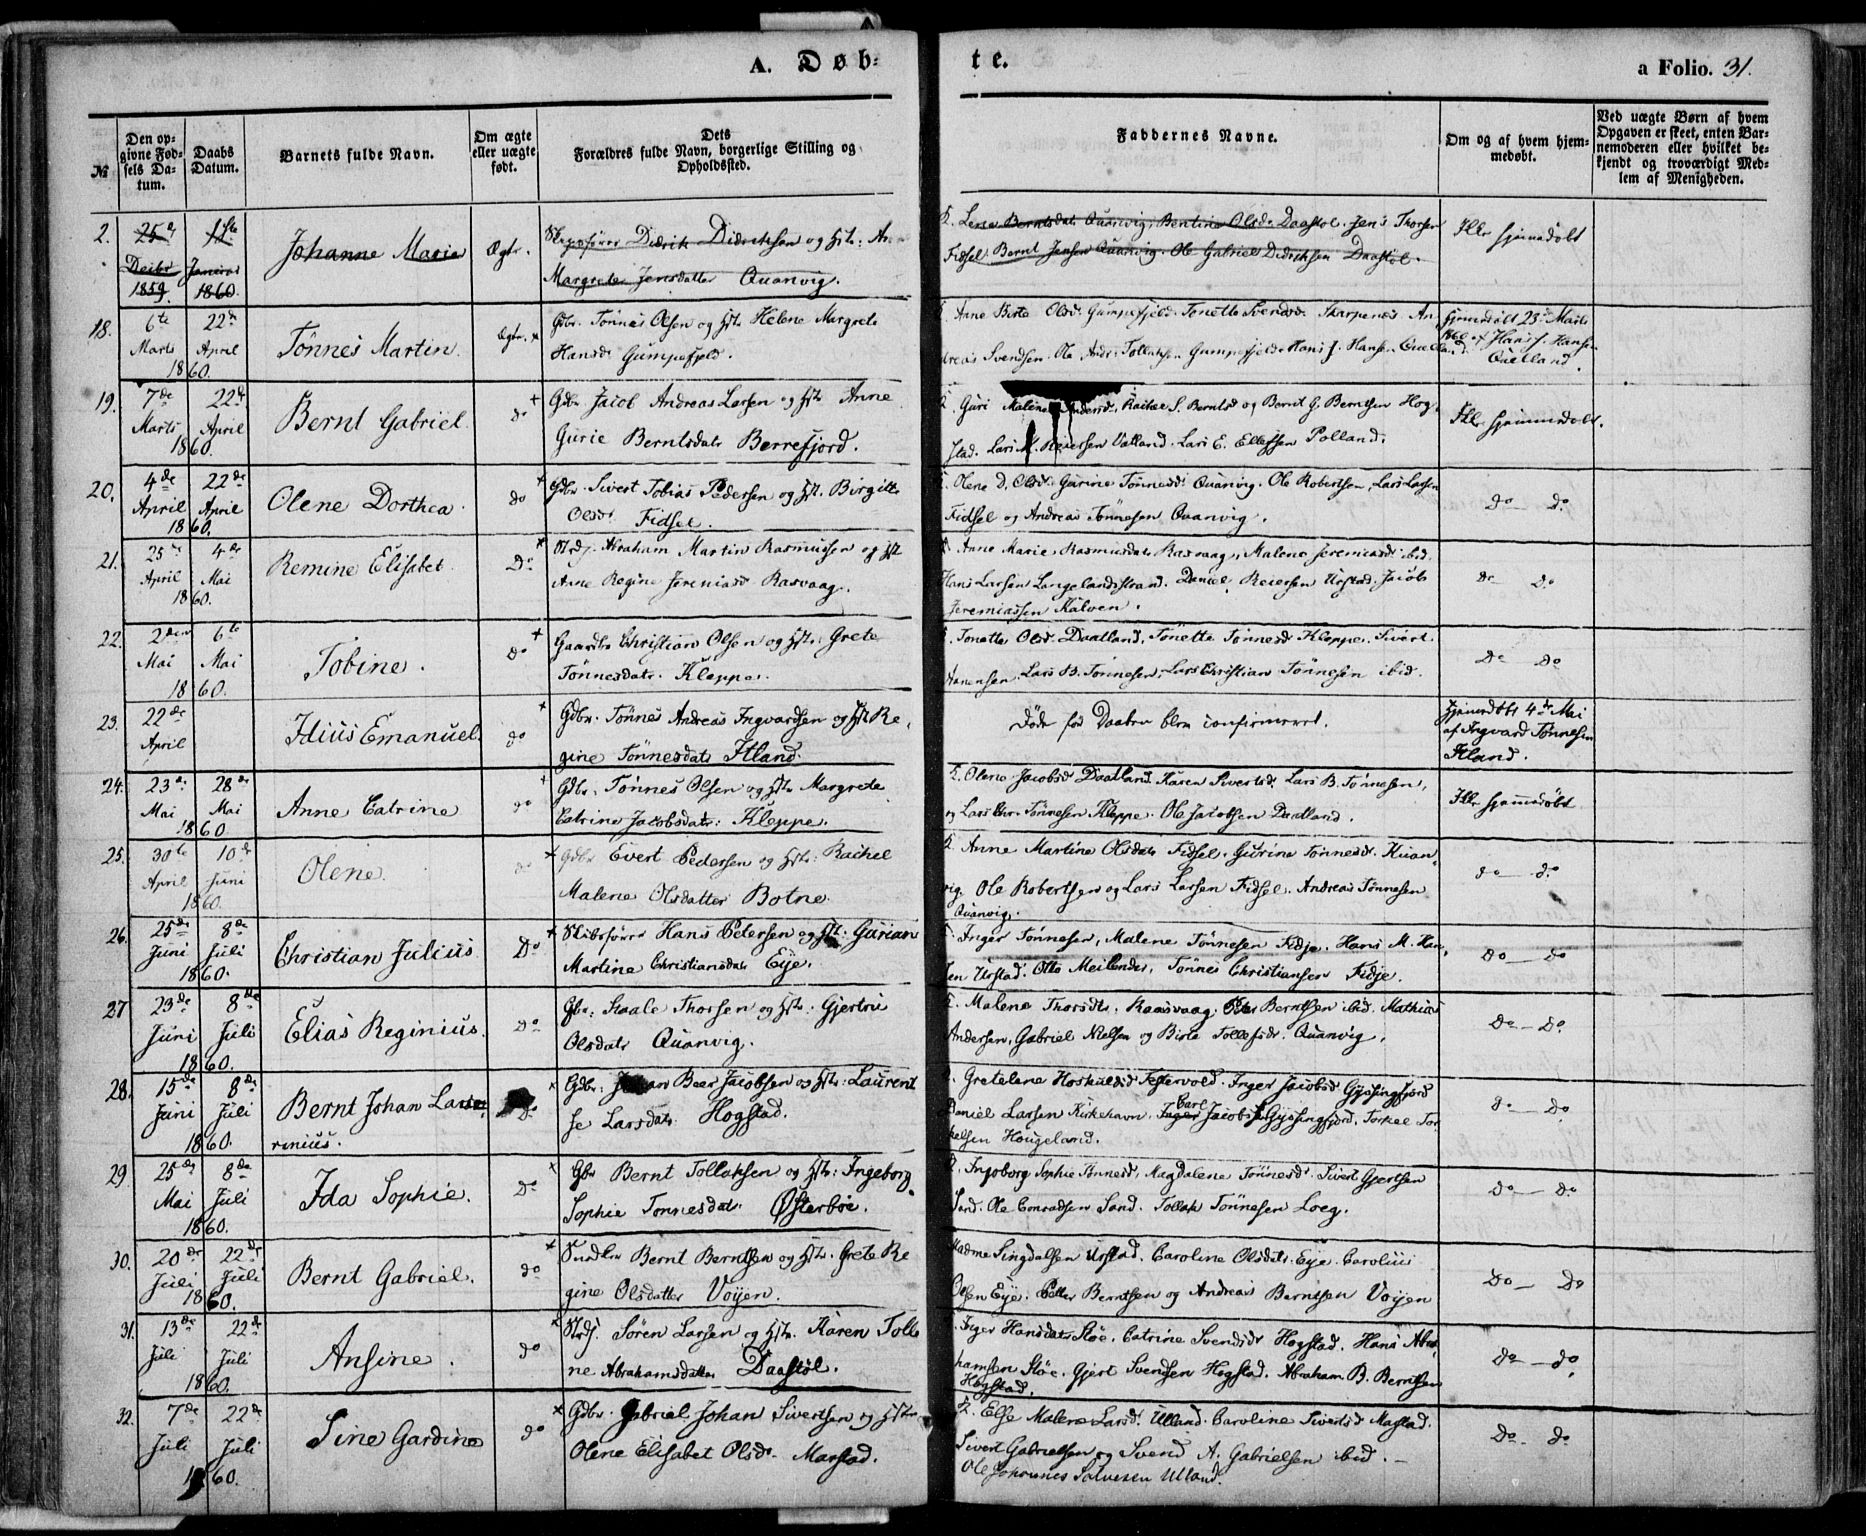 A. Døb=
te.
a Folio. 31.
№
Den op=
givne Fød=
sels Da=
tum.
Daabs
Datum.
Barnets fulde Navn.
Om ægte
eller uægte
født.
Dets
Forældres fulde Navn, borgerlige Stilling og
Opholdssted.
Faddernes Navne.
Om og af hvem hjem=
medøbt.
Ved uægte Børn af hvem
Opgaven er skeet, enten Bar=
nemoderen eller hvilket be=
kjendt og troværdigt Med=
lem af Menigheden.
2.
25de
Decbr
1859.
1ste
Januar
1860.
Johanne Marie
Ægte.
Didrik Didriksen og Hst:
Margrete Jensdatter Quanvig.
Lena Berntsdatr Quanvig, Bentine Olsd. Daastøl. Jens Thorsen
Fidsel. Bernt Jensen Quanvig. Ole Gabriel Didriksen Daastøl.
Ikke hjemdøbt
18.
6te
Marts
22de
April
1860.
Tønnes Martin.
Ægte.
Gdbr. Tønnes Olsen og Hst. Helene Margrete
Hansd. Gumpefjeld.
Anne Birte Olsd. Gumpefjeld. Tonette Svendsd. Skarpenes. An
dreas Svendsen. Ole Andr. Tollaksen Gumpefjeld. Hans J. Hansen Quelland.
Hjemmedøbt 23de Marts
1860 af Hans J. Hansen
Quelland.
19.
7de
Marts
22de
April
1860.
Bernt Gabriel.
do
Gdbr. Jacob Andreas Larsen og Hst. Anne
Gurie Berntsdatr Berrefjord.
Guri Malene Andersd. S. Berntsd og Bernt G. Berntsen Hog
stad. Lars M. Reiersen Vatland. Lars E. Ellefsen Polland.
Ikke hjemmedøbt.
20.
4de
April
22de
April
1860.
Olene Dorthea.
do
Gdbr. Sivert Tobias Pedersen og Hst. Birgitte
Olsdr. Fidsel.
Olene D. Olsdr. Gurine Tønnesd. Quanvig. Ole Robertsen, Lars Larsen
Fidsel og Andreas Tønnesen Quanvig.
Do — Do
21.
25de
April
4de
Mai
1860.
Remine Elisabet.
Do
Strdf. Abraham Martin Rasmussen og Hst
Ane Regine Jeremiasd Rasvaag.
Anne Marie Rasmusdatr Rasvaag, Malene Jeremiasd. ibid.
Hans Larsen Langelandsstrand. Daniel Reiersen Urstad. Jacob
Jeremiassen Kalven.
Do Do
22.
2den
Mai
6te
Mai
1860.
Tobine.
Do
Gaardbr. Christian Olsen og Hst. Grete
Tønnesdatr. Kleppe.
Tonette Olsd. Daatland, Tonette Tønnesd Kleppe. Sivert
Hanensen. Lars B. Tønnesen. Lars Christian Tønnesen ibid.
Do Do
23.
22de
April
Idius Emanuel.
do
Gdbr. Tønnes Andreas Ingvardsen og Hst Re
gine Tønnesdatr Itland.
Døde før Daaben blev confirmeret.
Hjemmedøbt 4de Mai
af Ingvard Tønnesen
Itland.
24.
23de
Mai
28de
Mai
1860
Anne Catrine
do
Gdbr. Tønnes Olsen og Hst. Margrete
Catrine Jacobsdatr. Kleppe.
Olene Jacobsd Daatland. Karen Sivertsd. Lars B. Tønnesen,
og Lars Chr. Tønnesen Kleppe. Ole Jacobsen Daatland.
Ikke hjemmedøbt
25.
30te
April
10de
Juni
1860.
Olene.
do
Gdbr Evert Pedersen og Hst. Rachel
Malene Olsdatter Botne.
Anne Martine Olsdatr Fidsel. Gurine Tønnesd. Kuan
vig. Ole Robertsen og Lars Larsen Fidsel. Andreas Tønnesen
Quanvig.
do — do
26.
25de
Juni
8de
Juli
1860.
Christian Julius
Do
Skibsfører Hans Petersen og Hst. Gurian
Martine Christiansdatr Eye.
Inger Tønnesen, Malene Tønnesen Fidje. Hans M. Han
sen Urstad. Otto Meilender, Tønnes Christiansen Fidje.
Do — Do
27
23de
Juni
8de
Juli
1860.
Elias Reginius.
Do
Gbr. Staale Thorsen og Hst. Gjertru
Olsdatr Quanvig.
Malene Thorsdt. Raasvaag, Peder Berntsen ibid. Mathias
Andersen, Gabriel Nielsen og Birte Tollefsdr. Quanvig.
Do — Do
28.
15de
Juni
8de
Juli
1860.
Bernt Johan Lau
renius.
Do
Gdbr. Johan Beer Jacobsen og Hst. Laurent
se Larsdatr Hogstad.
Gretelene Hoskuldsd Festervold. Inger Jacobsd Gyssingfjord
Daniel Larsen Kirkehavn. Inger Carl Jacobs Gyssingfjord. Torkel Tor
kelsen Hougeland.
do — Do
29
25de
Mai
8de
Juli
1860.
Ida Sophie.
Do
Gbr Bernt Tollaksen og Hst. Ingeborg
Sophie Tønnesdatr. Østerbøe.
Ingeborg Sophie Tønnesd. Magdalene Tønnesd. Sivert Gjertsen
Sand. Ole Conradsen Sand. Tollak Tønnesen Loeg.
Do — Do
30.
20de
Juli
22de
Juli
1860.
Bernt Gabriel.
do
Bernt Berntsen og Hst. Grete Re
gine Olsdatter Voyen.
Madme Singdalsen Urstad. Caroline Olsdatr. Eye. Carolius
Olsen Eye. Petter Berntsen og Andreas Berntsen Voyen
Do — Do
31.
13de
Juli
22de
Juli
1860.
Ansine.
do
Strdf. Sören Larsen og Hst. Karen Tolle
ne Abrahamsdatter Daastøl.
Inger Hansdatr Støe. Catrine Svendsdr Hogstad. Hans Abra
hamsen Støe. Gjert Svendsen Hogstad. Abraham B. Berntsen
Hogstad.
Do — do
32.
7de
Juli
22de
Juli
1860.
Sine Gardine
do
Gdbr. Gabriel Johan Sivertsen og Hst.
Olene Elisabet Olsdr. Marstad.
Else Malene Larsd. Ulland. Caroline Sivertsd Mastad.
Sivert Gabrielsen og Svend A. Gabrielsen ibid. —
Ole Johannes Salvesen Ulland.
Do — do